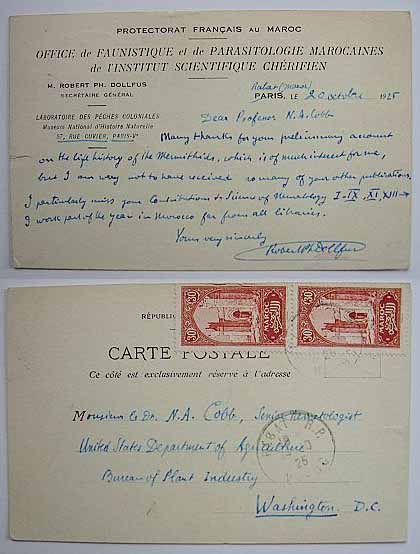 PROTECTORAT FRANÇAIS AU MAROC
OFFICE de FAUNISTIQUE et de PARASITOLOGIE MAROCAINES
de l'INSTITUT SCIENTIFIQUE CHÉRIFIEN
M. ROBERT PH. DOLLFUS
SECRÉTAIRE GÉNÉRAL
Rabat (Maroc)
PARIS, LE 20 octobre 1925
LABORATOIRE DES PÊCHES COLONIALES
Muséum National d'Histoire Naturelle
57, RUE CUVIER, PARIS-Ve
Dear Professor N. A. Cobb
Many thanks for your preliminary account
on the life history of the Mermithids, which is of much interest for me,
but I am very not to have received so many of your other publications
I particularly miss your Contributions to Science of Nematology I-IX, XI, XIII→
I work part of the year in Morocco far from all libraries.
Yours very sincerely
Robert Ph Dollfus
RÉPUBL
CARTE POSTALE
Ce côté est exclusivement réservé à l'adresse
30 MAROC 30
30 MAROC 30
RABAT R.P.
25
Monsieur le Dr. N. A. Cobb, Senior Nematologist
United States Department of Agriculture
Bureau of Plant Industry
Washington, D.C.